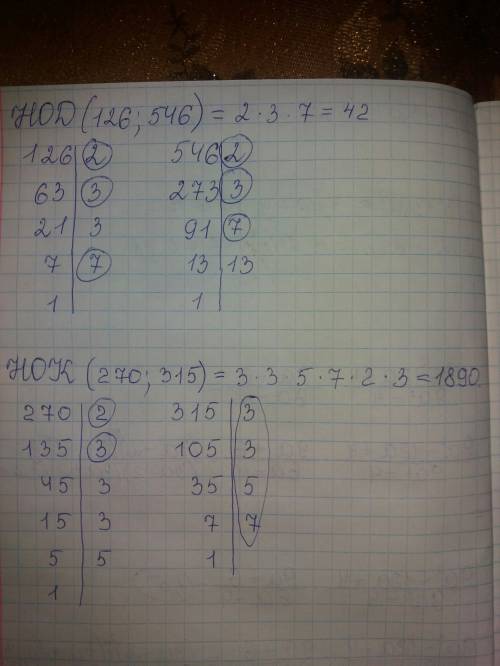 НОД (126; 546) = 2 · 3 · 7 = 42
126 | 2 546 | 2
63 | 3 273 | 3
21 | 3 91 | 7
7 | 7 13 | 13
1 | 1 |
НОК (270; 315) = 3 · 3 · 5 · 7 · 2 · 3 = 1890
270 | 2 315 | 3
135 | 3 105 | 3
45 | 3 35 | 5
15 | 3 7 | 7
5 | 5 1 |
1 |